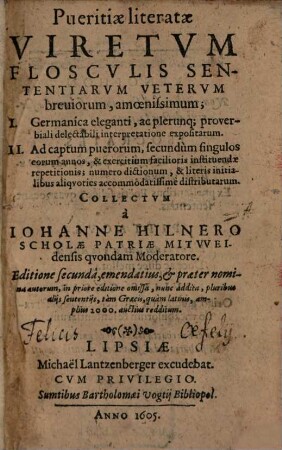 Pueritiæ literatæ
VIRETVM
FLOSCVLIS SEN-
TENTIARVM VETERVM
breuiorum, amœnissimum;
I. Germanica eleganti, ac plerunq; prover-
biali delectabili interpretatione expositarum.
II. Ad captum puerorum, secundùm singulos
eorum annos, & exercitium facilioris instituendæ
repetitionis; numero dictionum, & literis initia-
libus aliqvoties accommodatissimè distributarum.
COLLECTVM
à
IOHANNE HILNERO
SCHOLÆ PATRIÆ MITVVEI-
densis qvondam Moderatore.
Editione secundâ, emendatius, & præter nomi-
na autorum, in priore editione omissa, nunc addita, pluribus
alijs sententijs, tàm Græcis, quàm latinis, am-
plius 2000. auctius redditum.
Felicis
LIPSIÆ
Michaël Lantzenberger excudebat.
CVM PRIVILEGIO.
Sumtibus Bartholomæi Vogtij Bibliopol.
ANNO 1605.